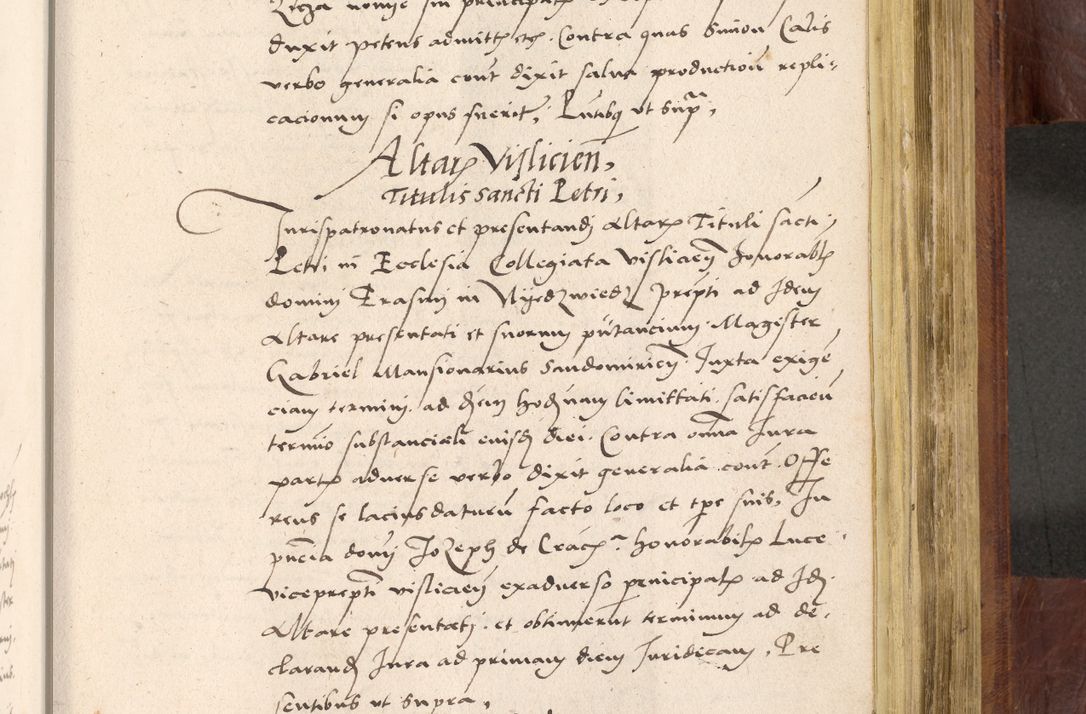 duxit petens admitti etc. Contra quas Simon Calis
verbo generalia cont dixit salva productioñ repli-
cacionum si opus fuerit, Pñtibq ut supra,
Altaris Visliciens,
Titulis sancti Petri,
Jurispatronatus et presentandj Altaris Tituli sacti
Petri in Ecclesia Collegiata Visliaciens honorabilis
dominj Erasmj in Nyedzwiedz prepti ad Idem
Altare presentati et suorum putancium. Magister
Gabriel Mansionarius Sandomiriens. Juxta exige
ciam termini. ad diem hodiernam limittati. satisfacieñ
termino substanciali eiusdem diei. Contra omnia Jura
partis adverse verbo dixit generalia cont. Offe
rens se lacius daturum facto loco et tpe suis, In
pñcia domini Jozeph de Cracovia honorabilis Luce
viceprepti visliaciens exadverso principalis ad Idem
Altare presentati. et obtinuerunt terminum ad de-
clarandum Jura ad primam diem Juridicam, Pre
sentibus ut supra,